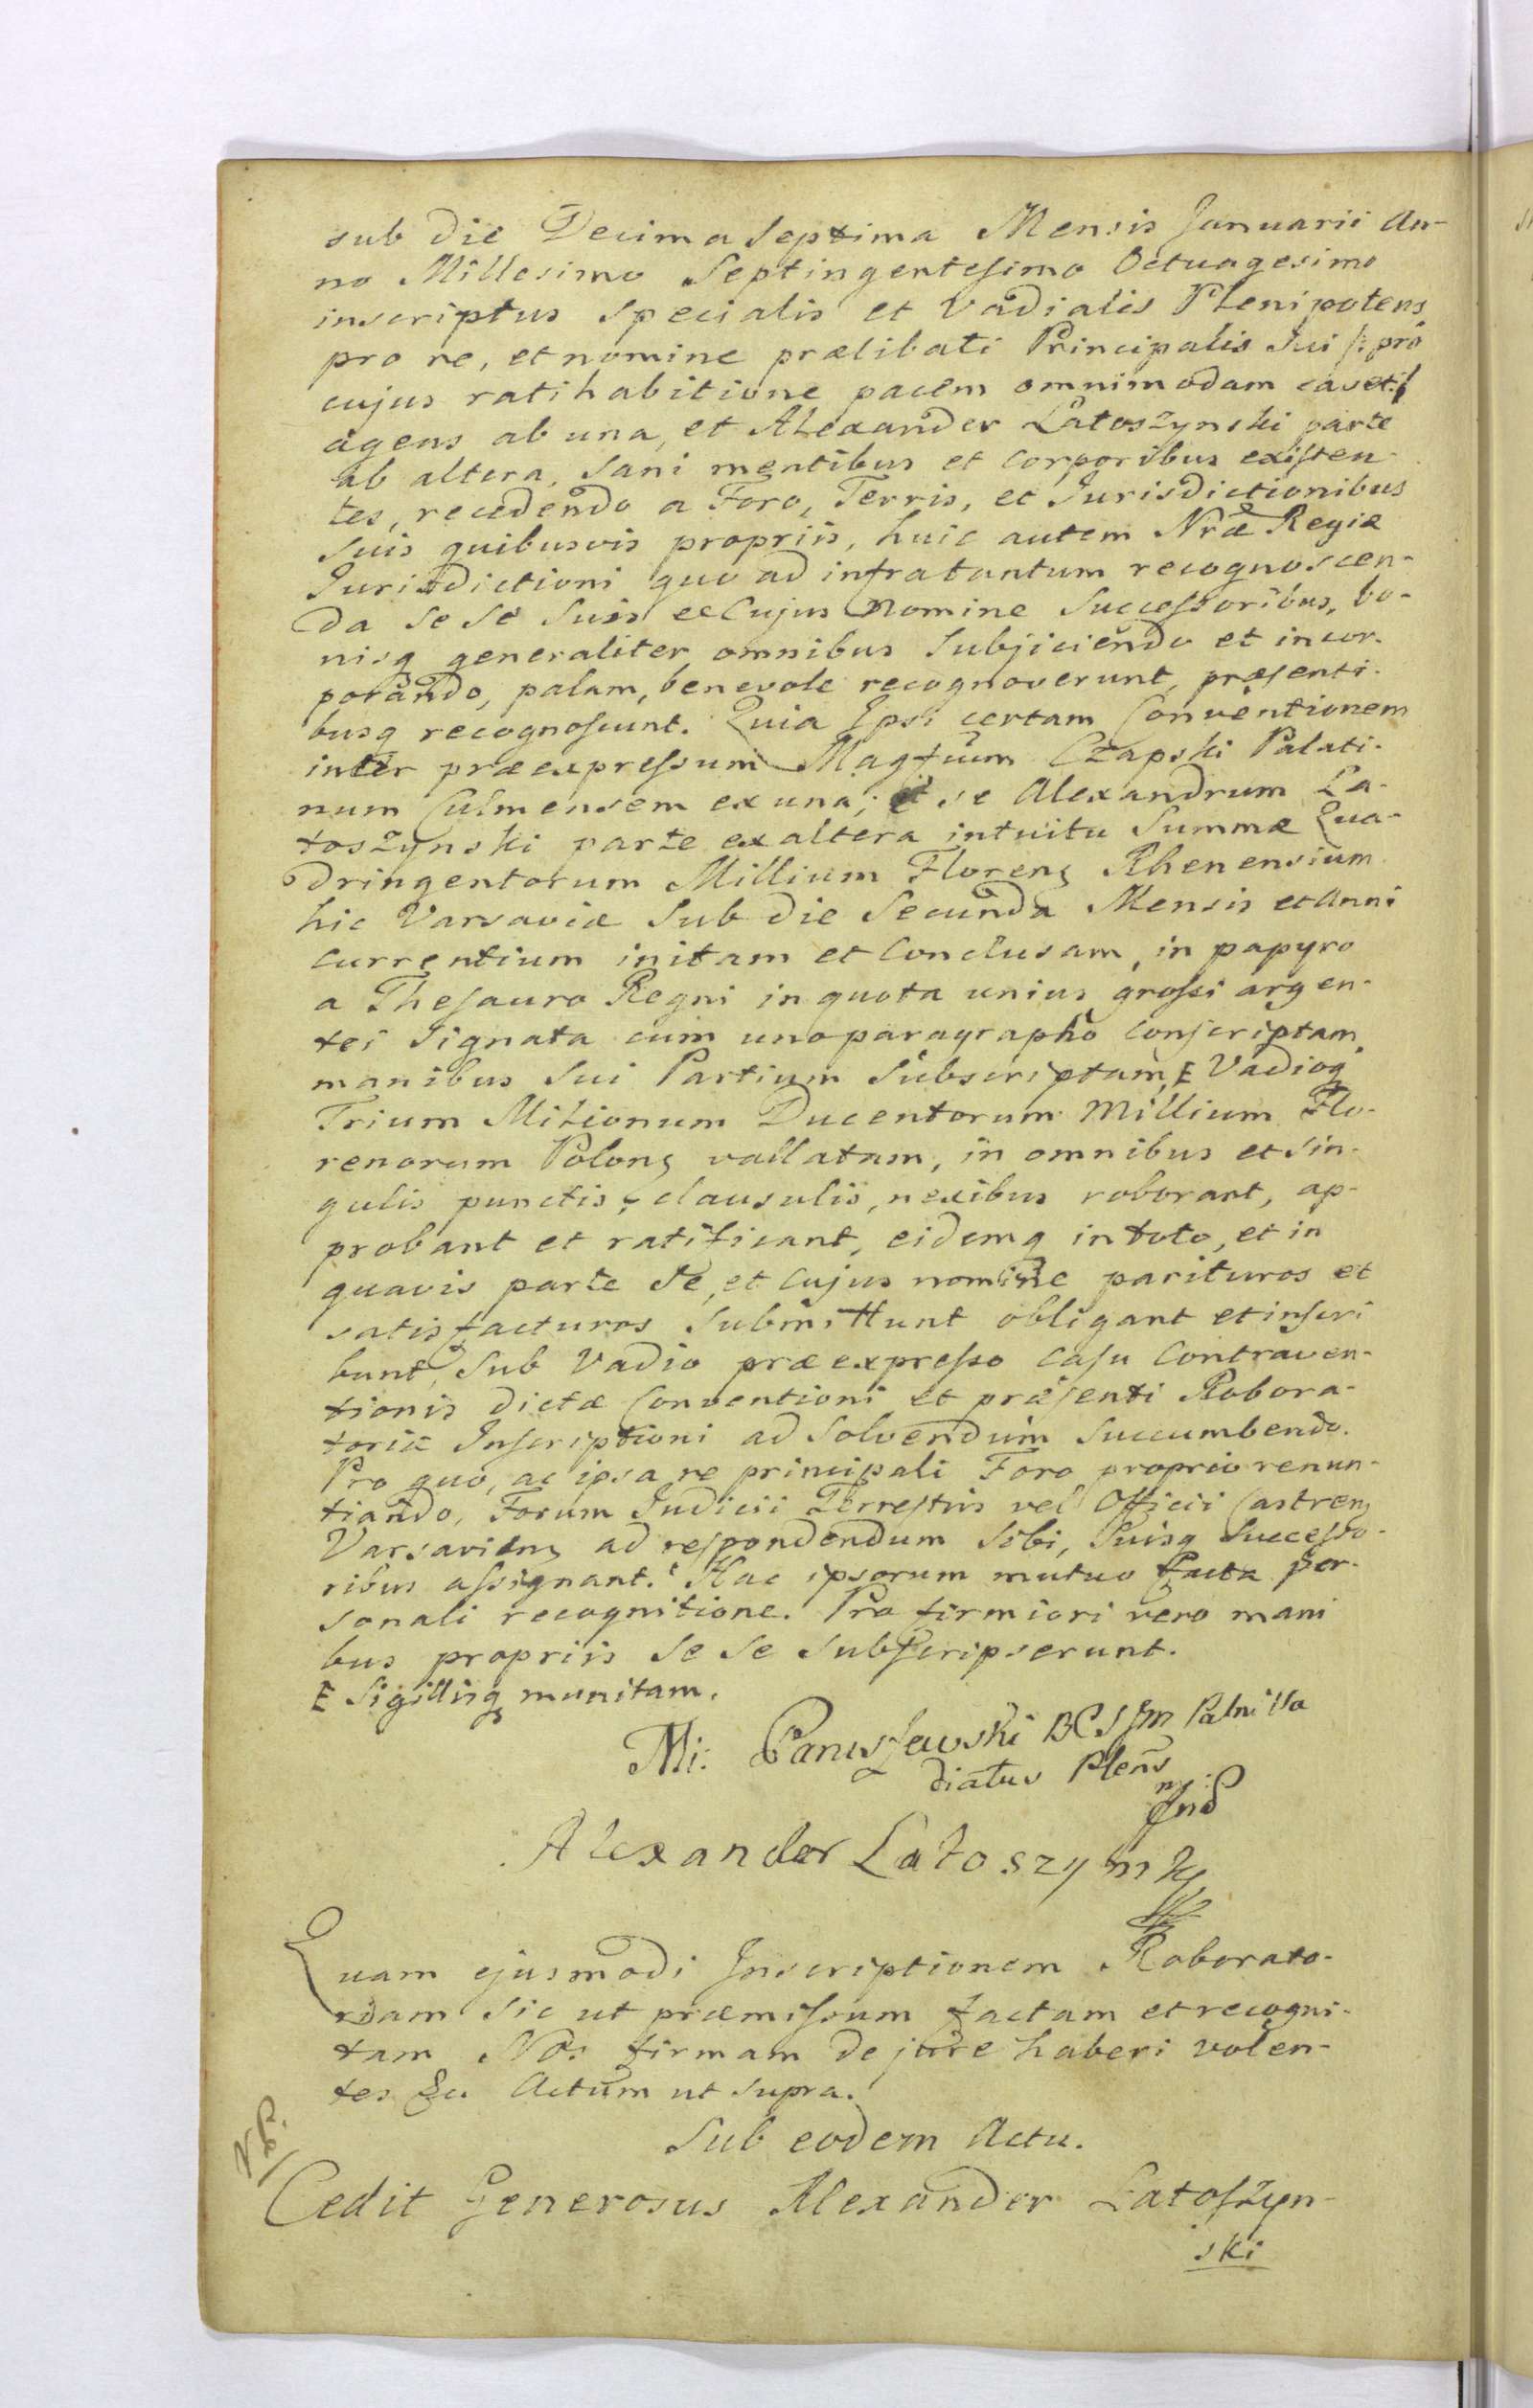 sub die Decima Septima Mensis Januarii An-
no Millesimo Septingentesimo Octuagesimo
inscriptus specialis et Vadialis Plenipotens
pro re, et nomine prælibati Principalis Sui /: pro
cujus ratihabitione pacem omnimodam cavet :/
agens ab una, et Alexander Latoszynski parte
ab altera, Sani mentibus et Corporibus existen-
tes, recedendo a Foro, Terris, et Jurisdictionibus
Suis quibusvis propriis, huic autem Nræ Regiæ
Jurisdictioni quo ad infratantum recognoscen-
da Se Se Suis ec Cujus Nomine Successoribus, bo-
nisq generaliter omnibus Subjiciendo et incor-
porando, palam, benevole recognoverunt, præsenti-
busq recognoscunt. Quia Ipsi certam Conventionem
inter præexpressum Magfium Czapski Palati-
num Culmensem ex una, et se Alexandrum La-
toszynski parte ex altera intuitu Summæ Qua-
dringentorum Millium Floren Rhenensium
hic Varsaviæ Sub die Secunda Mensis et Anni
Currentium initam et Conclusam, in papyro
a Thesauro Regni in quota unius grossi argen-
tei Signata cum uno paragrapho Conscriptam,
manibus Sui Partium Subscriptam, E Vadioq
Trium Milionum Ducentorum Millium Flo-
renorum Polon vallatam, in omnibus et Sin-
gulis punctis, clausulis, nexibus roborant, ap-
probant et ratificant, eidemq in toto, et in
quavis parte Se, et Cujus nomine parituros et
satisfacturos Submittunt obligant et inscri
bunt, Sub Vadio præexpresso Casu Contraven-
tionis dictæ Conventioni et præsenti Robora-
toriæ Inscriptioni ad Solvendum Succumbendo.
Pro quo, ac ipsa re principali Foro proprio renun-
tiando, Forum Judicii Terrestris vel Officii Castren
Varsavien ad respondendum Sibi, Suisq Successo-
ribus assignant. Hac ipsorum mutuo facta per-
sonali recognitione. Pro firmiori vero mani
bus propriis Se Se Subscripserunt.
E Sigillisq munitam.
Mi:
diatus Plens
Alexander Latoszynsky
Quam ejusmodi Inscriptionem Roborato-
riam Sic ut præmissum factam et recogni-
tam Nos firmam de jure haberi volen-
tes &c Actum ut supra.
Sub eodem Actu.
Cedit Generosus Alexander Latoszyn-
ski